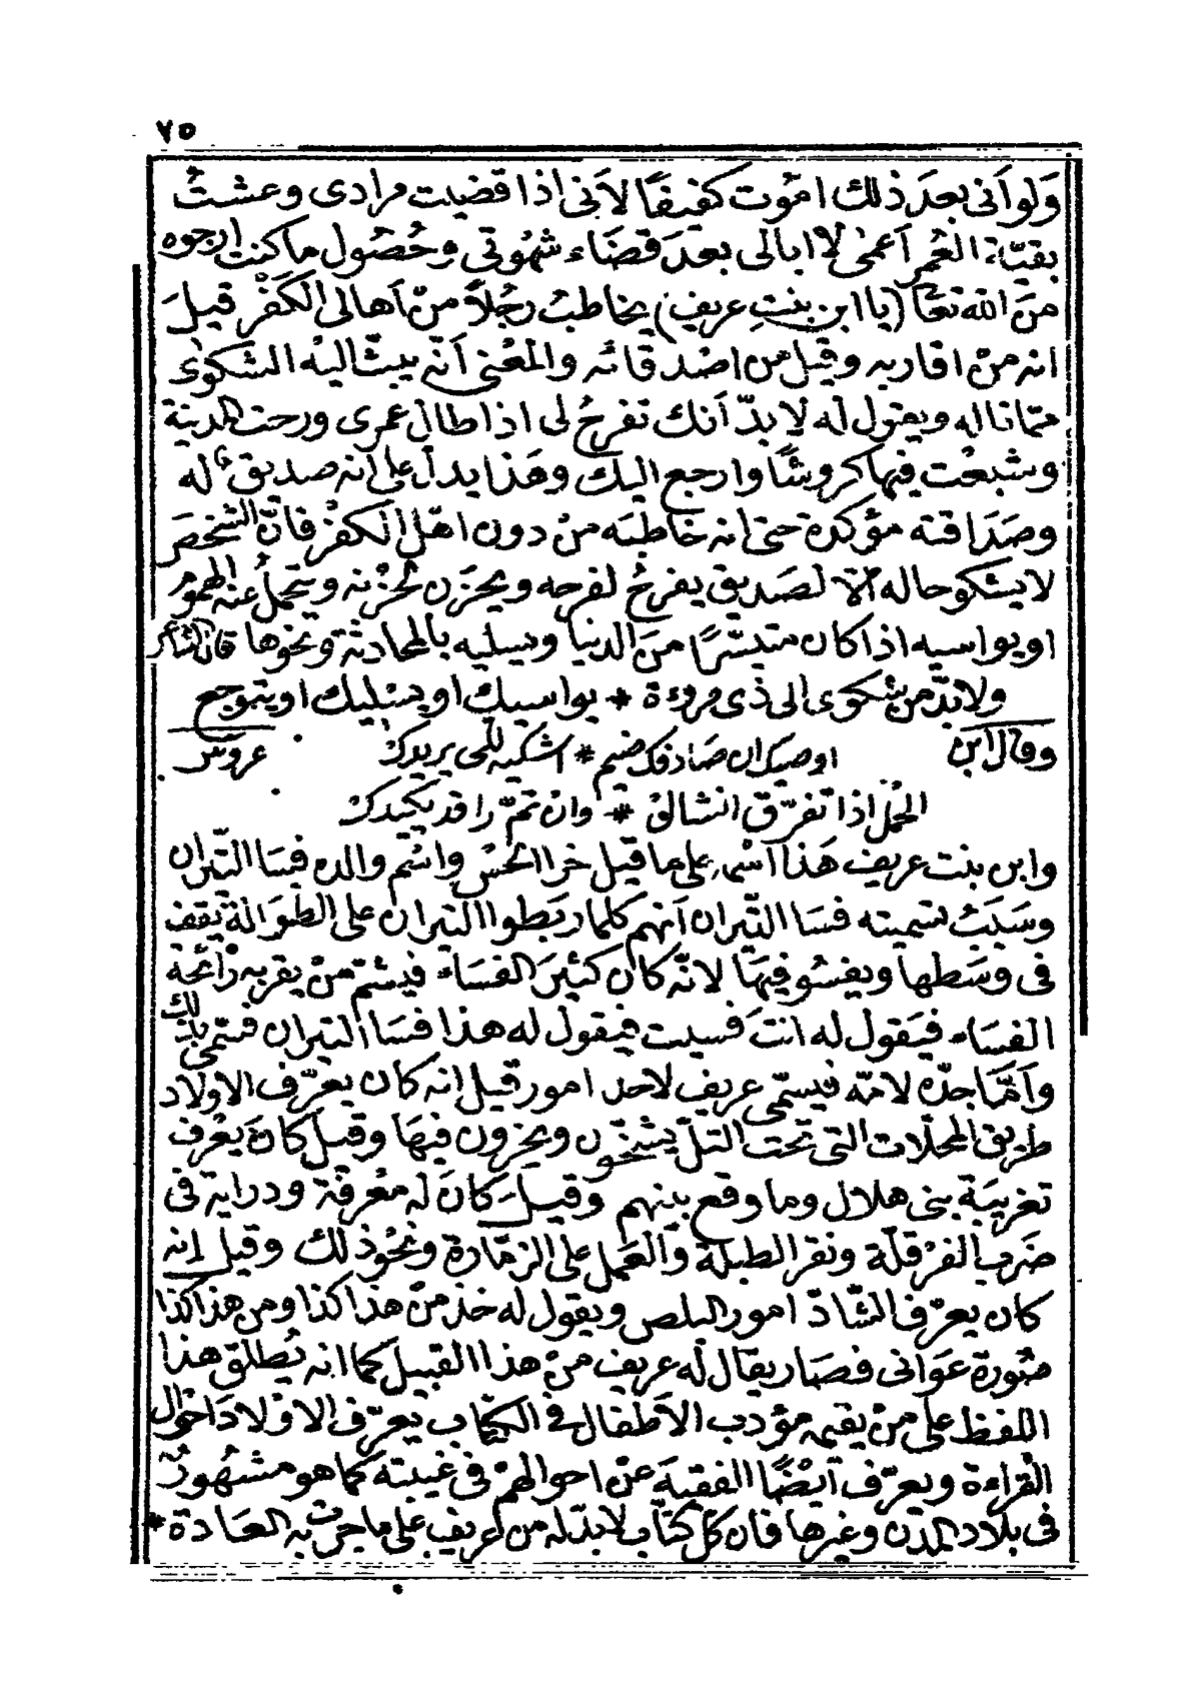 ٧٥
وَلو أنى بعدَ ذلك اموت كفيفًا لأنى اذا قضيت مرادى وعشتُ
بقيّة العُمر أعمى لا ابالى بعدَ قضَاء شهْوتى وحُصُول ما كنت ارجوه
منَ الله تعَالى (يا ابن بنتِ عريف) يخاطبُ رجُلاً منْ أهالى الكَفْر قيلَ
انه منْ اقاربه وقيل من اصْدقائه والمعْنى أنّه يبثّ اليْه الشكوَى
ممّا ناله ويقول له لا بدّ أنك تفرحُ لى اذا طال عمرى ورحت المدينة
وشبعْت فيها كروشًا وارجع اليك وهَذا يدل على انه صديقٌ له
وصَدَاقته مؤكدة حتى انه خاطبَه منْ دون اهْل الكفْر فانّ الشخصَ
لا يشكو حاله الّا لصَديق يفرحُ لفرحه ويحزَن لحُزْنه ويتحملُ عنه الهمومَ
او يواسيه اذا كان متيسّرًا منَ الدنيا ويسليه بالمحادثة ونحْوها قال الشاعر
ولا بدّ من شكوى الى ذى مروءة * يواسيك او يسْليك او يتوجع
وقال ابن عروس
اوصيك ان صَادفك ضيم * اشكيه للى يريدك
الحمْل اذا تفرّق انشالْ * وانْ تمّ راقد يكيدك
وابن بنت عريف هَذا اسْمه على ما قيل خرا الحسْ واسْم والده فسَا التيران
وسَبَبُ تسميته فسَا التّيران أنهم كلما ربَطوا التيران على الطوَالة يقف
فى وسَطها ويفسُو فيهَا لانّه كان كثيرَ الفسَاء فيشتم منْ يقربه رَائحة
الفسَاء فيَقول له انتَ فسيت فيقول له هذا فسَا التيران فسمّى بذلك
وَأمّا جدّه لامّه فيسمّى عريف لاحد امور قيل انه كان يعرّف الاولاد
طريق المحلّات التى تحت التلّ يشخّون ويخرون فيهَا وقيل كانَ يعْرف
تغريبَة بنى هلال وما وقع بينهم وقيل كانَ له معْرفة ودراية فى
ضَرب الفرْقلّة ونقر الطبلة والعَمل على الزمّارة ونحْو ذلك وقيل إنه
كان يعرّف الشّادّ امور البلص ويقول له خذ منْ هذا كذا ومن هذا كذا
صُورة عَوانى فصَار يقال له عريف منْ هذا القبيل كما انه يُطلق هذا
اللفظ على منْ يقيمه مؤدب الأطفال فى الكتاب يعرّف الاولاد احْوال
القراءة ويعرّف أيْضًا الفقيهَ عنْ احوالهمْ فى غيبته كما هو مشهُورٌ
فى بلاد المدُن وغيرها فان كلّ كتّاب لا بدّ له من عريف على ما جرت به العَادة *